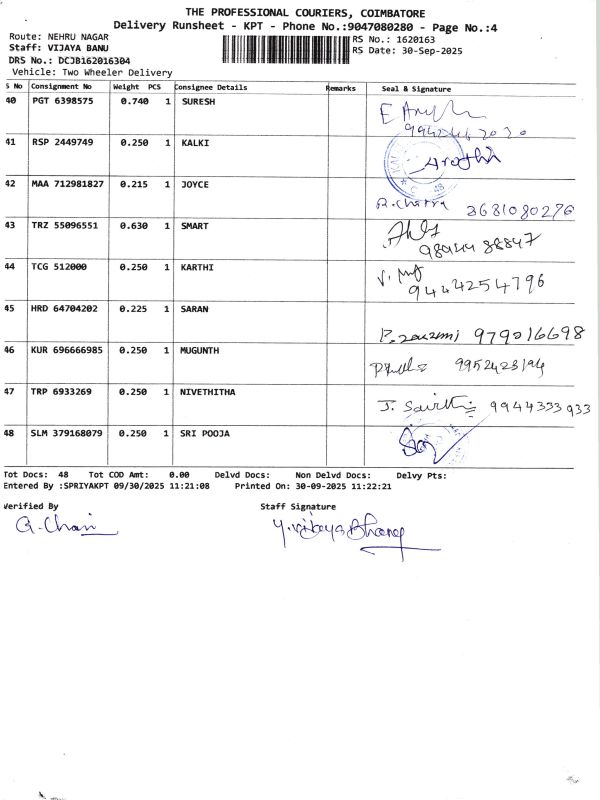 THE PROFESSIONAL COURIERS, COIMBATORE
Delivery Runsheet - KPT - Phone No.:9047080280 - Page No.:4
Route: NEHRU NAGAR
RS No.: 1620163
Staff: VIJAYA BANU
RS Date: 30-Sep-2025
DRS No.: DCJB162016304
Vehicle: Two Wheeler Delivery
S No Consignment No Weight PCS Consignee Details Remarks Seal & Signature
40 PGT 6398575 0.740 1 SURESH
41 RSP 2449749 0.250 1 KALKI Arathi
42 MAA 712981827 0.215 1 JOYCE
43 TRZ 55096551 0.630 1 SMART
44 TCG 512000 0.250 1 KARTHI 9442254796
45 HRD 64704202 0.225 1 SARAN
46 KUR 696666985 0.250 1 MUGUNTH
47 TRP 6933269 0.250 1 NIVETHITHA 9944333933
48 SLM 379168079 0.250 1 SRI POOJA
Tot Docs: 48 Tot COD Amt: 0.00 Delvd Docs: Non Delvd Docs: Delvy Pts:
Entered By :SPRIYAKPT 09/30/2025 11:21:08 Printed On: 30-09-2025 11:22:21
Verified By Staff Signature